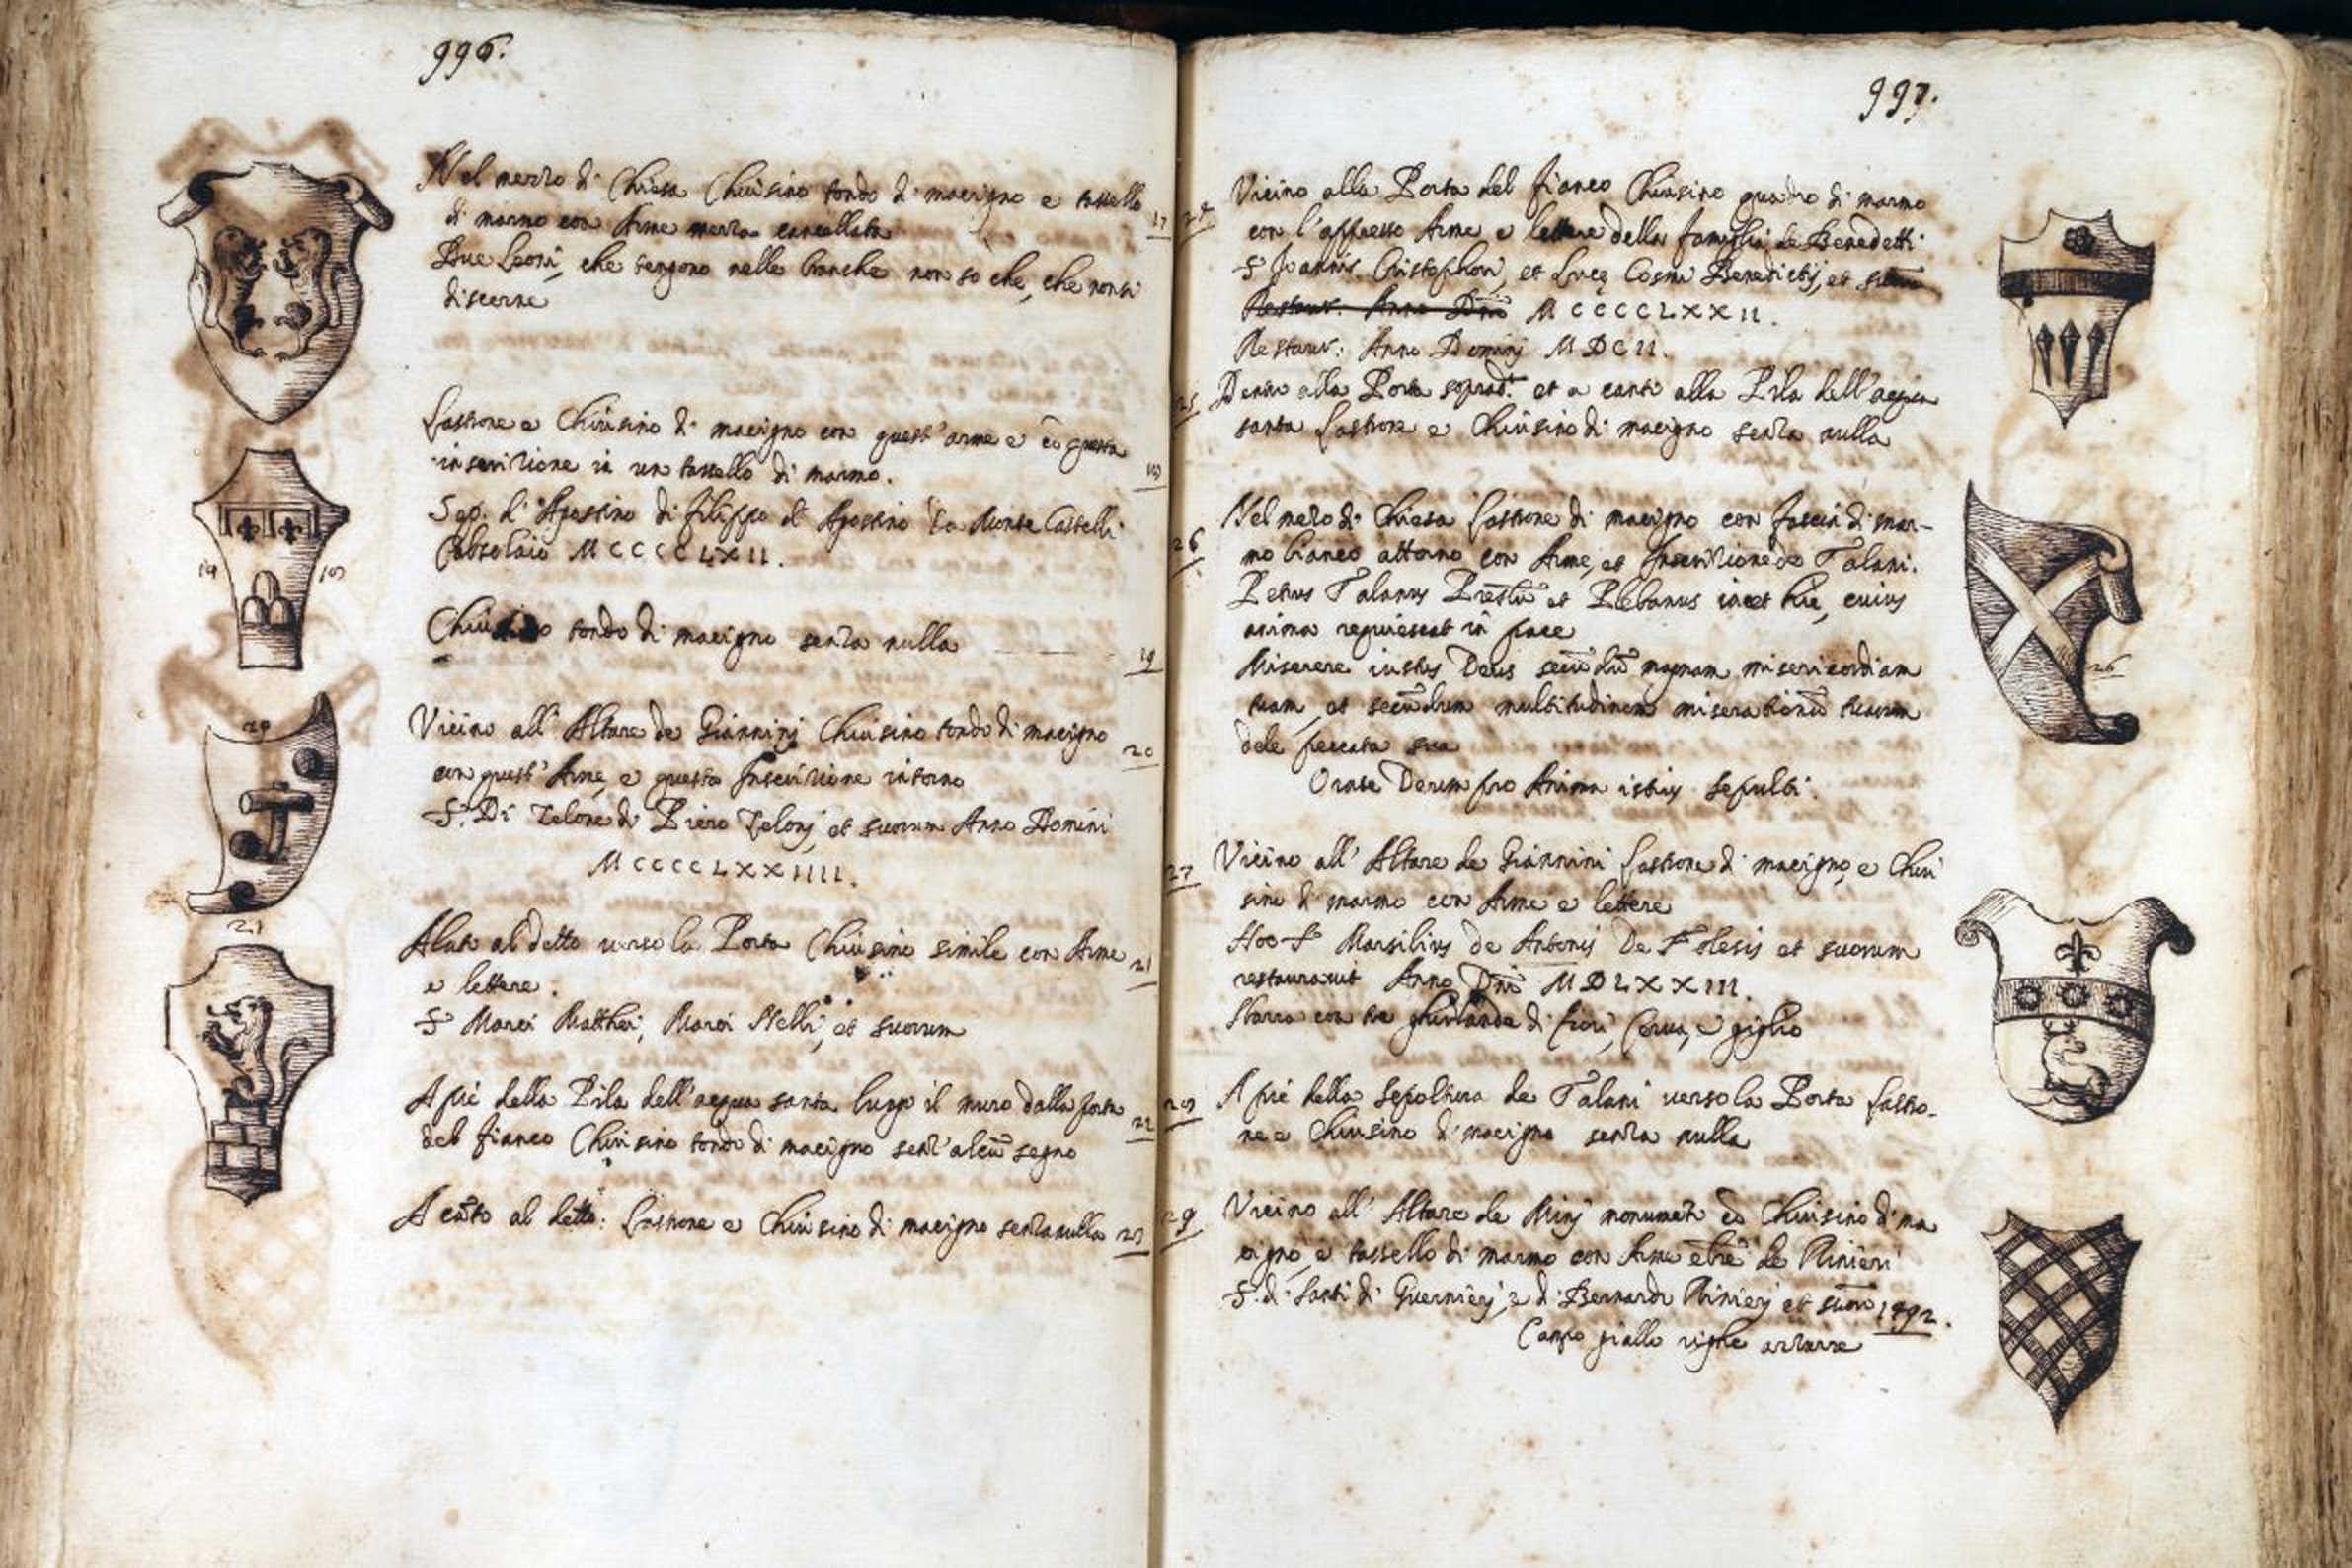 996.
Nel mezzo di Chiesa Chiusino tondo di macigno e tassello
di marmo con Arme mezza cancellata 17
Due Leoni, che tengono nelle branche non so che, che non si
discerne
Lastrone e Chiusino di macigno con quest'arme e cō questa
inscrizione in un tassello di marmo. 18
Sep. d'Agostino di Filippo d'Agostino da Monte Castelli
MCCCCLXII.
18 18
Chiusino tondo di macigno senza nulla 19
Vicino all'Altare de Giannini Chiusino tondo di macigno 20
con quest'Arme, e questa Inscrizione intorno
S. Di Zelone di Piero Zelonj, et suorum Anno Domini
MCCCCLXXIIII.
20
21
A lato al detto verso la Porta Chiusino simile con Arme 21
e lettere.
S. Marci Matthei, Marci Nelli, et suorum
A piè della Pila dell'acqua santa lungo il muro dalla porta
del fianco Chiusino tondo di macigno senz'alcū segno 22
A cāto al detto: Lastrone e Chiusino di macigno senza nulla 23
997.
24 Vicino alla Porta del fianco Chiusino quadro di marmo
con l'appresso Arme e lettere della famiglia de Benedetti
S. Joannis Cristophori, et Lucę Cosmi Benedictij, et
Restaur. Anno Dn̄i MCCCCLXXII.
Restaur: Anno Dominj MDCII.
25 Dentro alla Porta soprad.ta et a canto alla Pila dell'acqua
santa Lastrone e Chiusino di macigno senza nulla
26 Nel mezo di Chiesa Lastrone di macigno con fascia di mar-
mo bianco attorno con Arme, et Inscrizione de Talani.
Petrus Talanus et Plebanus iacet hic, cuius
anima requiescat in pace
Miserere iustus Deus secūdū magnam misericordiam
tuam, et secūdum multitudinem miserationū tuarum
dele peccata sua
Orate Deum pro Anima istius sepulti.
26
27 Vicino all'Altare de Giannini Lastrone di macigno, e Chiu
sino di marmo con Arme e lettere
Hoc S. Marsilius de Antonij De Folesis et suorum
restauravit Anno Dn̄i MDLXXIII.
Sbarra con tre ghirlande di fiori, Cerva, e giglio
28 A piè della Sepoltura de Talani verso la Porta Lastro-
ne e Chiusino di macigno senza nulla
29 Vicino all'Altare de Minj monumēto cō Chiusino di ma
cigno, e tassello di marmo con Arme de Rinieri
S. di Santi di Guernierj, e di Bernardo Rinierj et suorū 1492.
Campo giallo righe azzurre